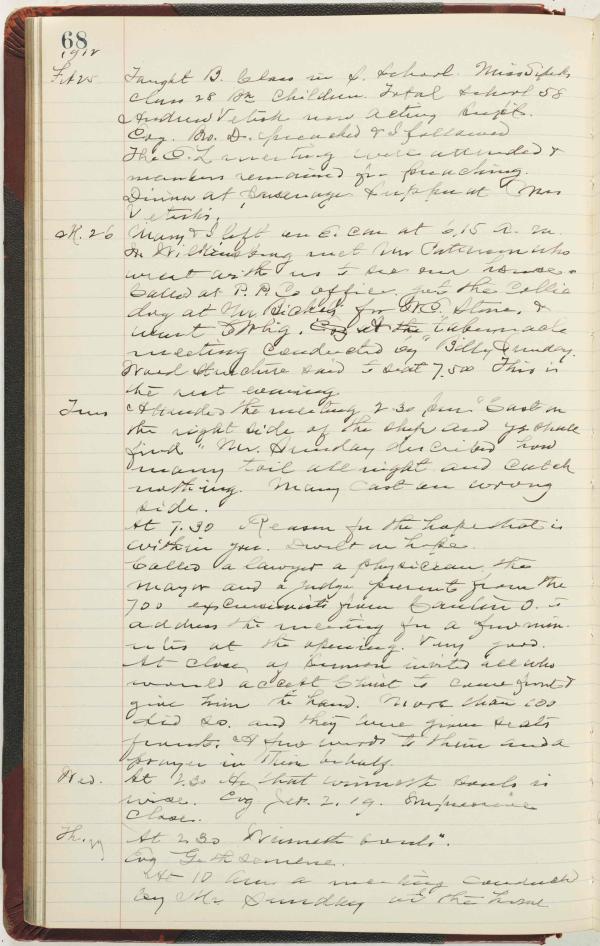 68
1912
Feb 25 Taught B. Class in S. School. Miss
Class 28 Bn Children. Total School 58
Andrew Vetisk now acting Supt.
Evg. Bro. D. preached & I followed
The E. L. meeting were attended &
members remained for preaching.
Dinner at Parsonage Supper at Mrs
Vetisk's.
M. 26 Mary & I left on E. Car at 6,15 A. M.
In Wilkinsburg met Mr Patterson who
went with us to see our house.
Called at P. A. C. office, got the Collie
dog at Mr. for Store, &
went Evg At the Tabernacle
meeting conducted by "Billy Sunday.
Wood structure said to seat 7.500 This is
the rest evening
Tues Attended the meeting 2-30 Ser. "Cast on
the right side of the ship and ye shall
find" Mr. Sunday described how
many toil all night and catch
nothing. Many cast on wrong
side.
At 7.30 Reason for the hope that is
within you. Dwelt on hope.
Called a lawyer a physician, the
mayor and a judge present from the
700 excursionists from Canton O. to
address the meeting for a few min-
utes at the opening. Very good.
At close of sermon invited all who
would accept Christ to come front &
give him the hand. More than 100
did so. and they were given seats
front. A few words to them and a
prayer in their behalf.
Wed. At 2.30 He that winneth souls is
wise. Evg Jer. 2.19. Impressive
close.
Th. 29 At 2.30 Winneth souls".
Evg Gethsemene.
At 10 A.M. a meeting conduct
by Mr Sunday at the home